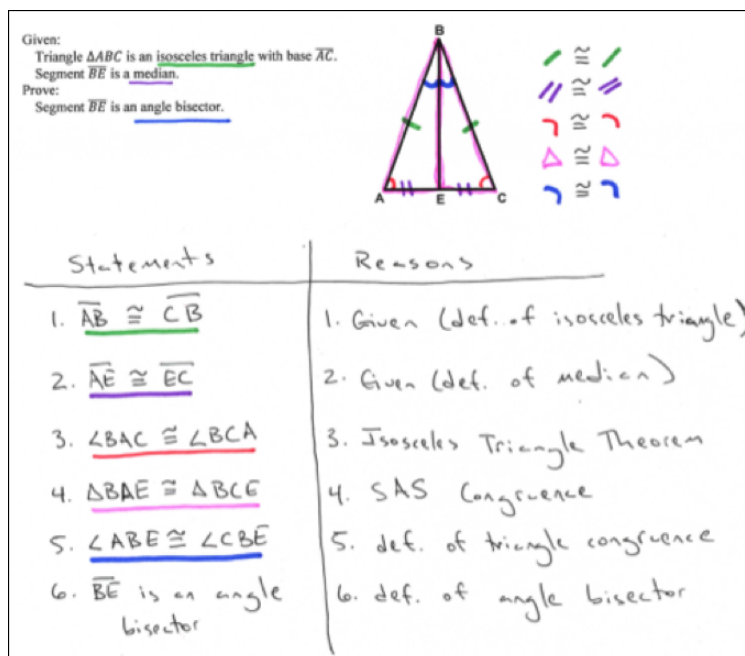 Given:
Triangle ΔABC is an isosceles triangle with base A̅C̅.
Segment B̅E̅ is a median.
Prove:
Segment B̅E̅ is an angle bisector.
B
A
E
C
≅
≅
≅
△ ≅ △
≅
Statements
Reasons
1. A̅B̅ ≅ C̅B̅
1. Given (def. of isosceles triangle)
2. A̅E̅ ≅ E̅C̅
2. Given (def. of median)
3. ∠BAC ≅ ∠BCA
3. Isosceles Triangle Theorem
4. ΔBAE ≅ ΔBCE
4. SAS Congruence
5. ∠ABE ≅ ∠CBE
5. def. of triangle congruence
6. B̅E̅ is an angle
bisector
6. def. of angle bisector